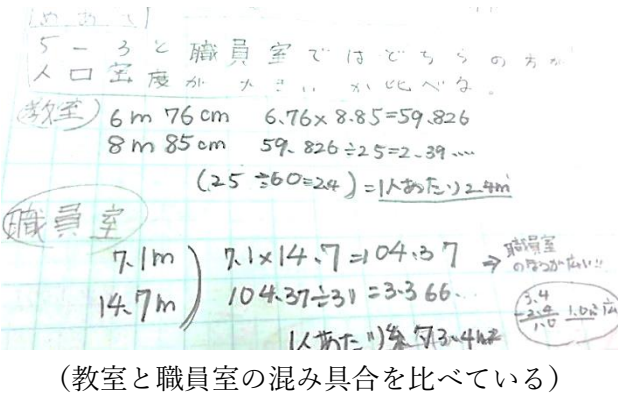 [めあて]
5-3と職員室ではどちらの方が
人口密度が大きいか比べる。
教室) 6m 76cm 6.76×8.85=59.826
8m 85cm 59.826÷25=2.39….
(25÷60=24)=1人あたり2.4㎡
職員室
7.1m) 7.1×14.7=104.37 ⇒ 職員室
14.7m 104.37÷31=3.366… のほうが広い!!
1人あたり約3.4㎡
3.4
-2.4
1.0 1.0㎡広
(教室と職員室の混み具合を比べている)